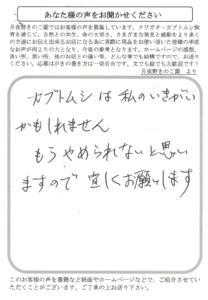 あなた様の声をお聞かせください
月夜野きのこ園ではお客様の声を募集しています。クワガタ・カブトムシ飼
育を通じて、自然との共生、命の大切さ、さまざまな発見と感動をより多く
の方達にお伝え出来るお店になる為に実際に商品をお使い頂いた皆様の率直
なお声が何よりの力となり、今後の参考となります。ホームページの感想、
良い所、悪い所、他のお店との違い等、どんな事でも結構ですので、お送り
ください。応募はがきの書き方は一切自由です。文でも絵でも大歓迎です！
月夜野きのこ園 より
カブトムシは私のいきがい
かもしれません
もうやめられないと思い
ますので宜しくお願いします
このお客様の声を書籍など紙面やホームページなどで、ご紹介させてい
ただくことがございます。ご了承の上お送り下さい。